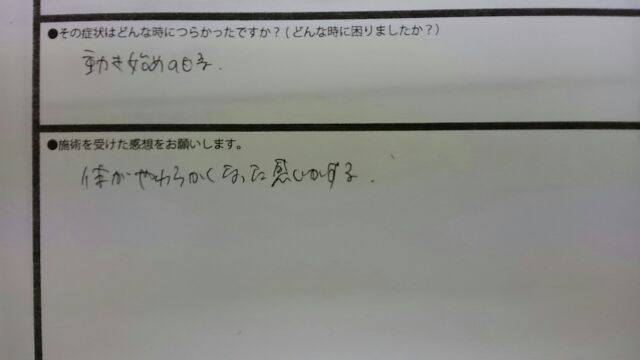 ●その症状はどんな時につらかったですか?(どんな時に困りましたか?)
動き始めの時.
●施術を受けた感想をお願いします。
体がやわらかくなった感じがする.